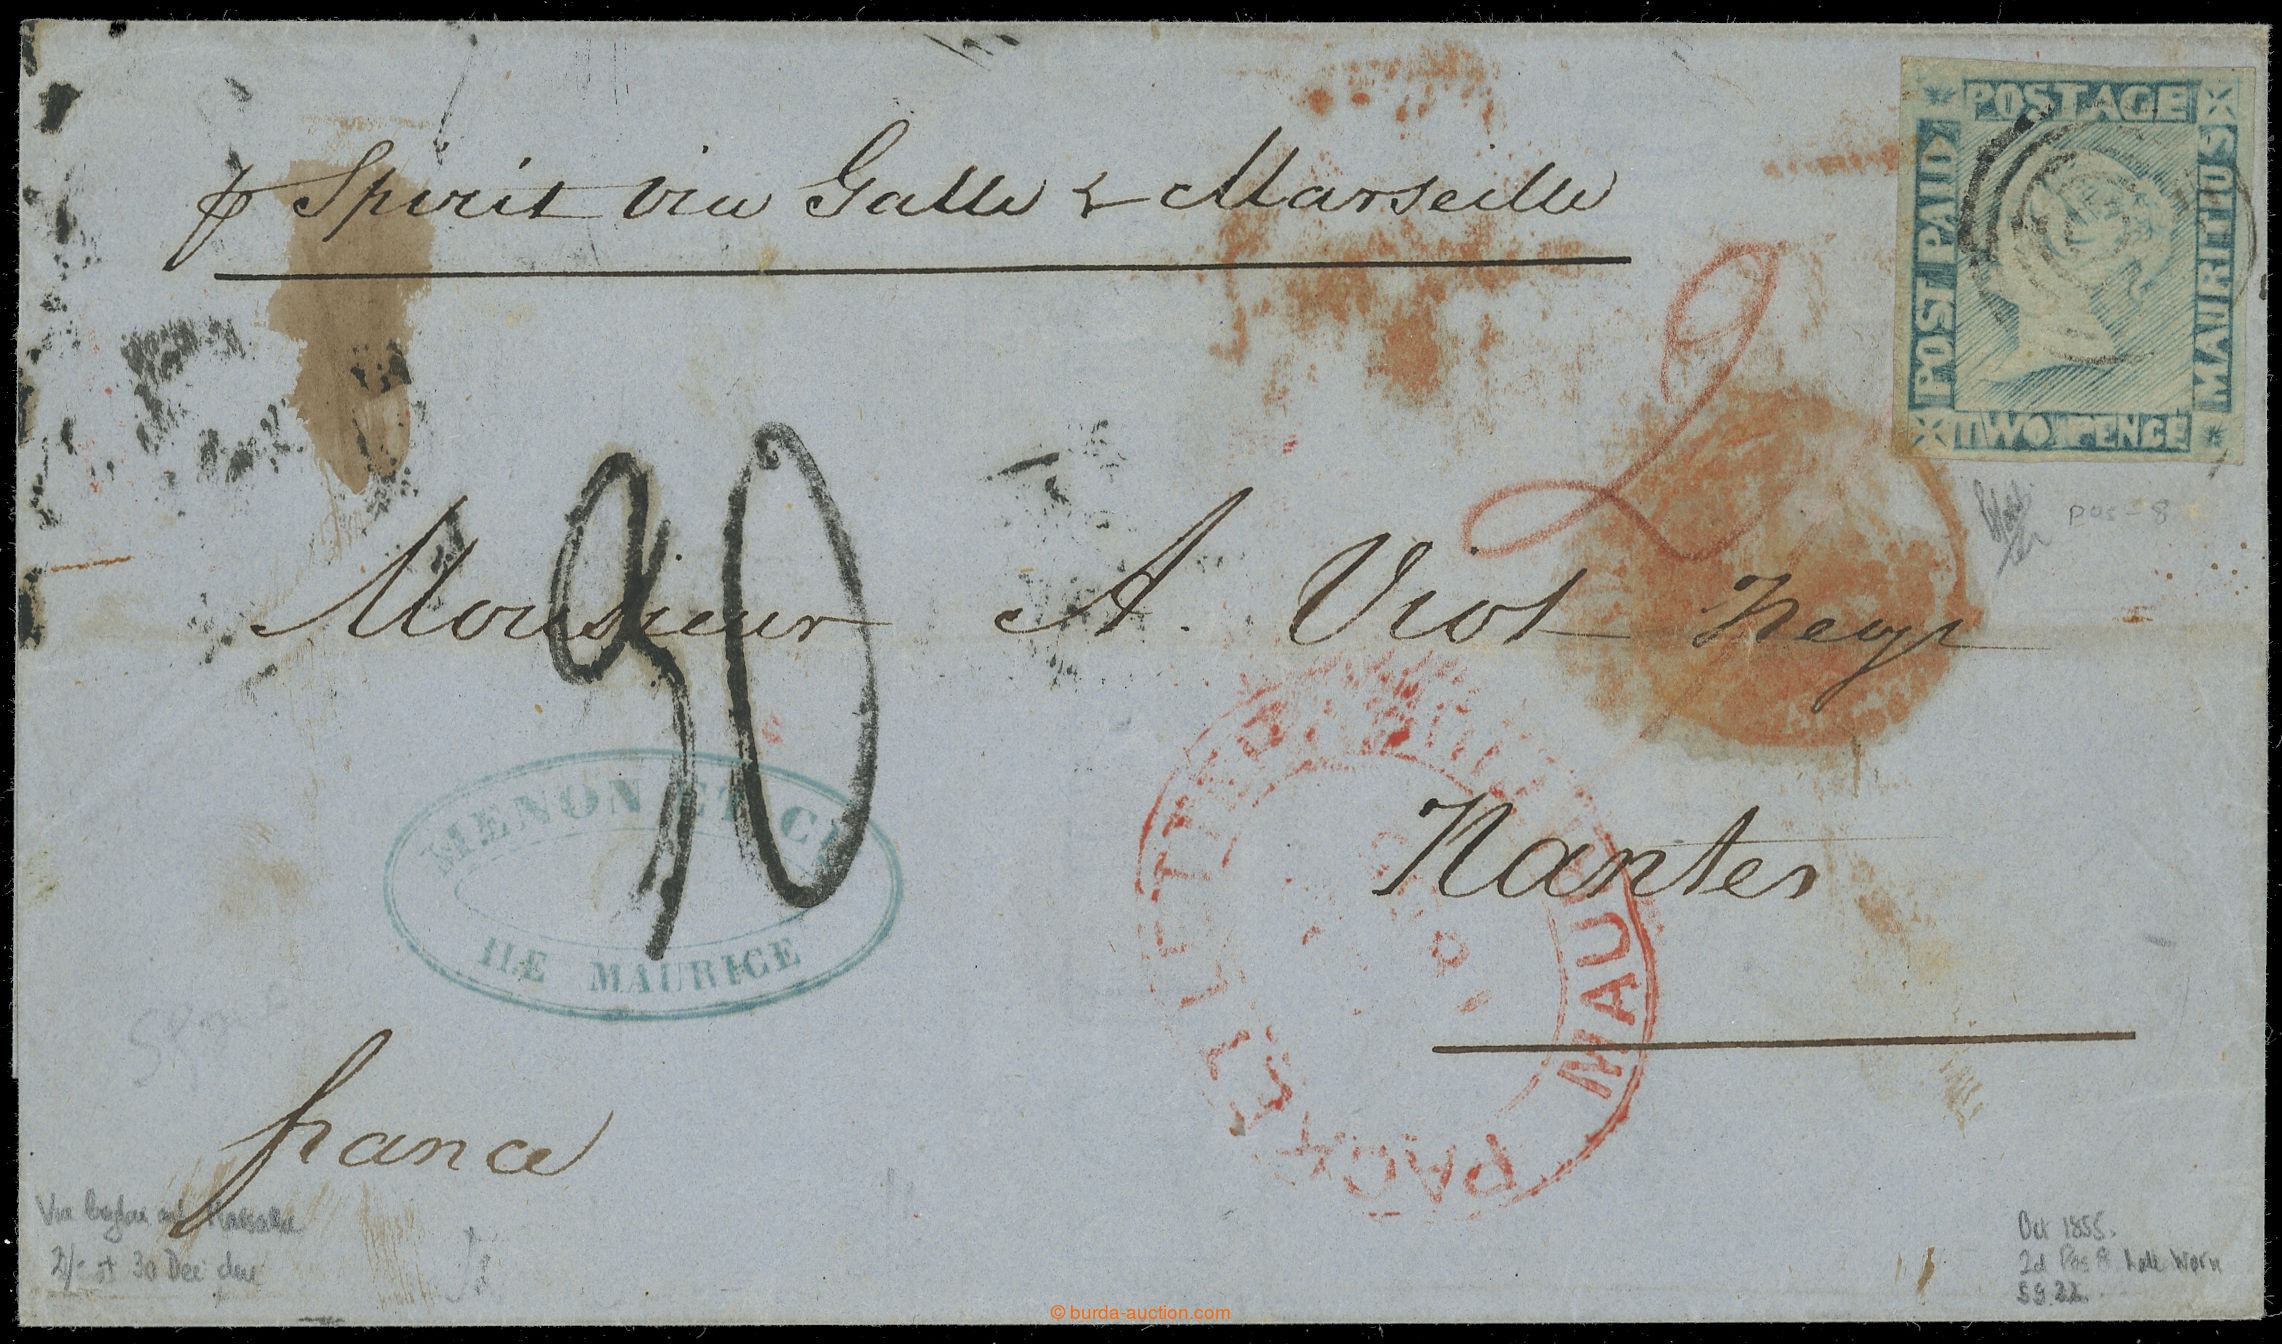 POSTAGE
POST PAID
MAURITIUS
TWO PENCE
p Spirit via Galle & Marseille
2
pos - 8
30
Monsieur A. Viot Neyr
MENON ET CIE
ILE MAURICE
Nantes
PACKET LETTER MAURITIUS
france
Via Ceylon and Marseille
2/- at 30 Dec due
Oct 1855.
2d Pos 8 Late Worn
SG 22.
© burda-auction.com